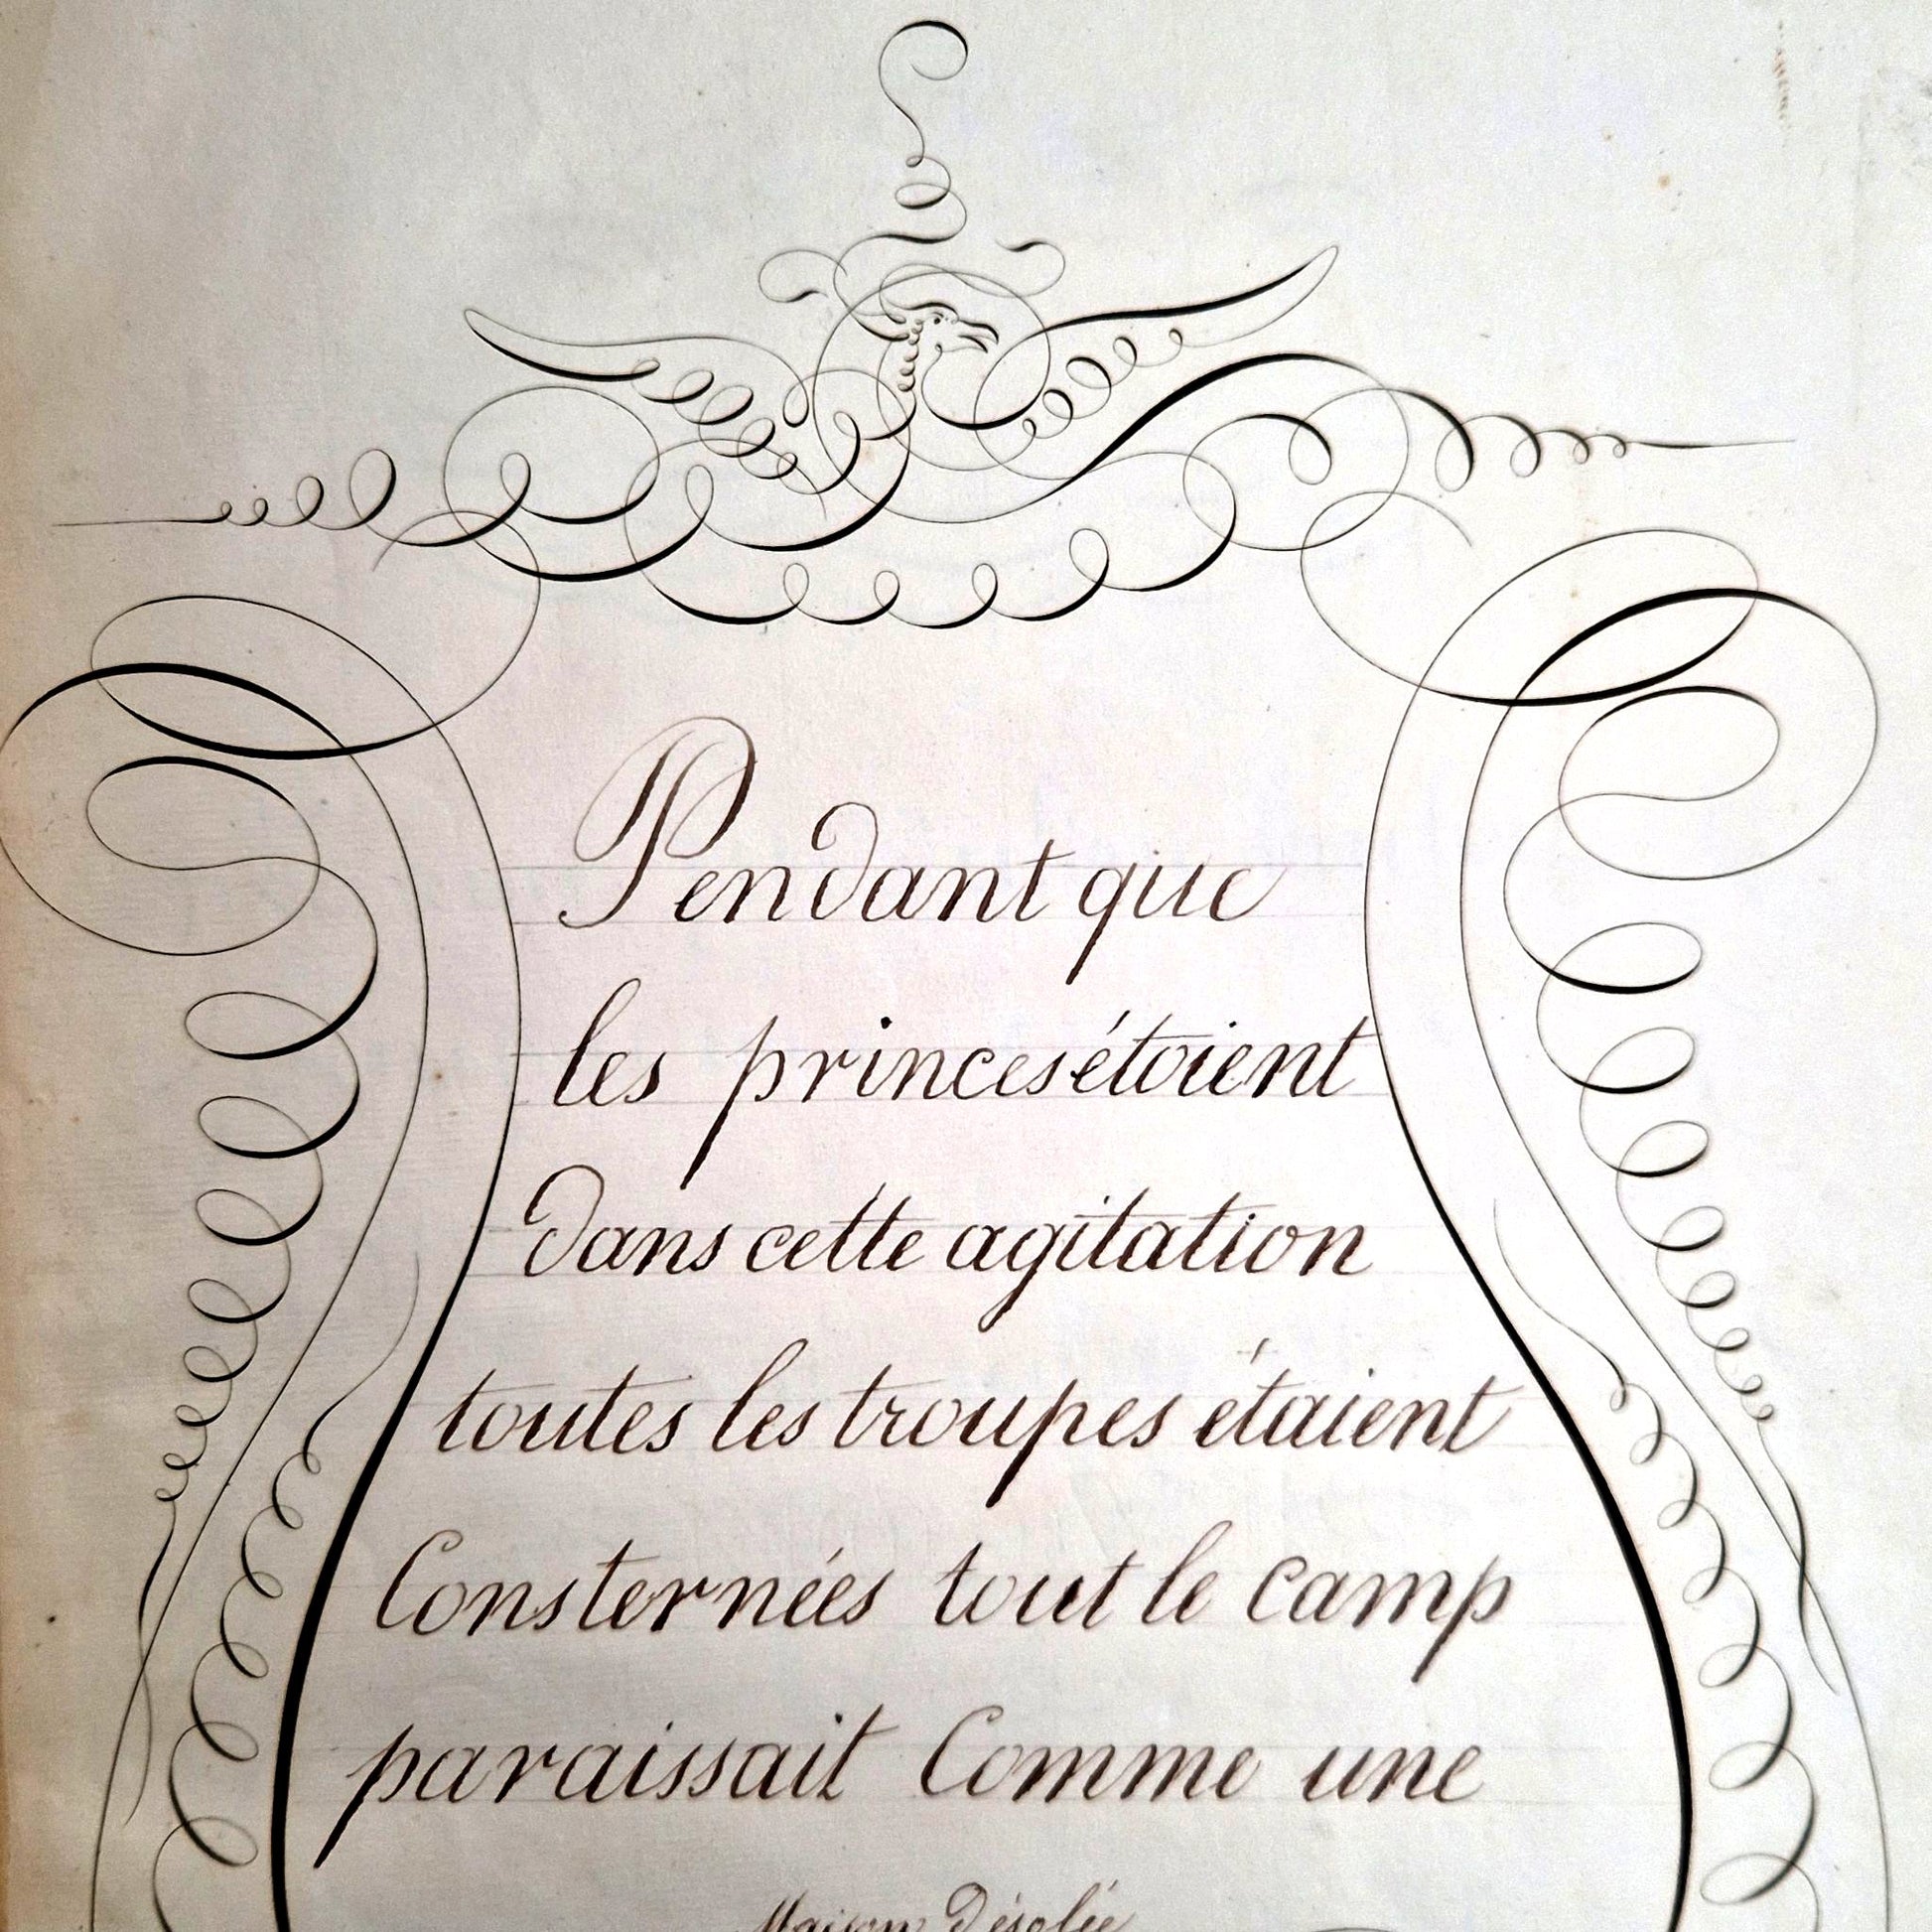 Pendant que
les princes étoient
dans cette agitation
toutes les troupes étaient
Consternées tout le camp
paraissait Comme une
Maison Désolée